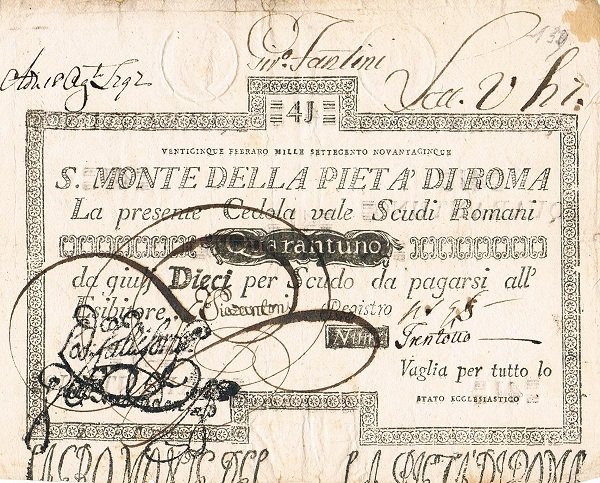 130
Fantini
Adi 18 Agto 1792
41
VENTICINQUE FEBRARO MILLE SETTECENTO NOVANTACINQUE
S. MONTE DELLA PIETA' DI ROMA
La presente Cedola vale Scudi Romani
Quarantuno
da giulj Dieci per Scudo da pagarsi all'
Esibitore, Registro
Num. Trentotto
Vaglia per tutto lo
STATO ECCLESIASTICO
SACRO MONTE DEL LA PIETA DI ROMA